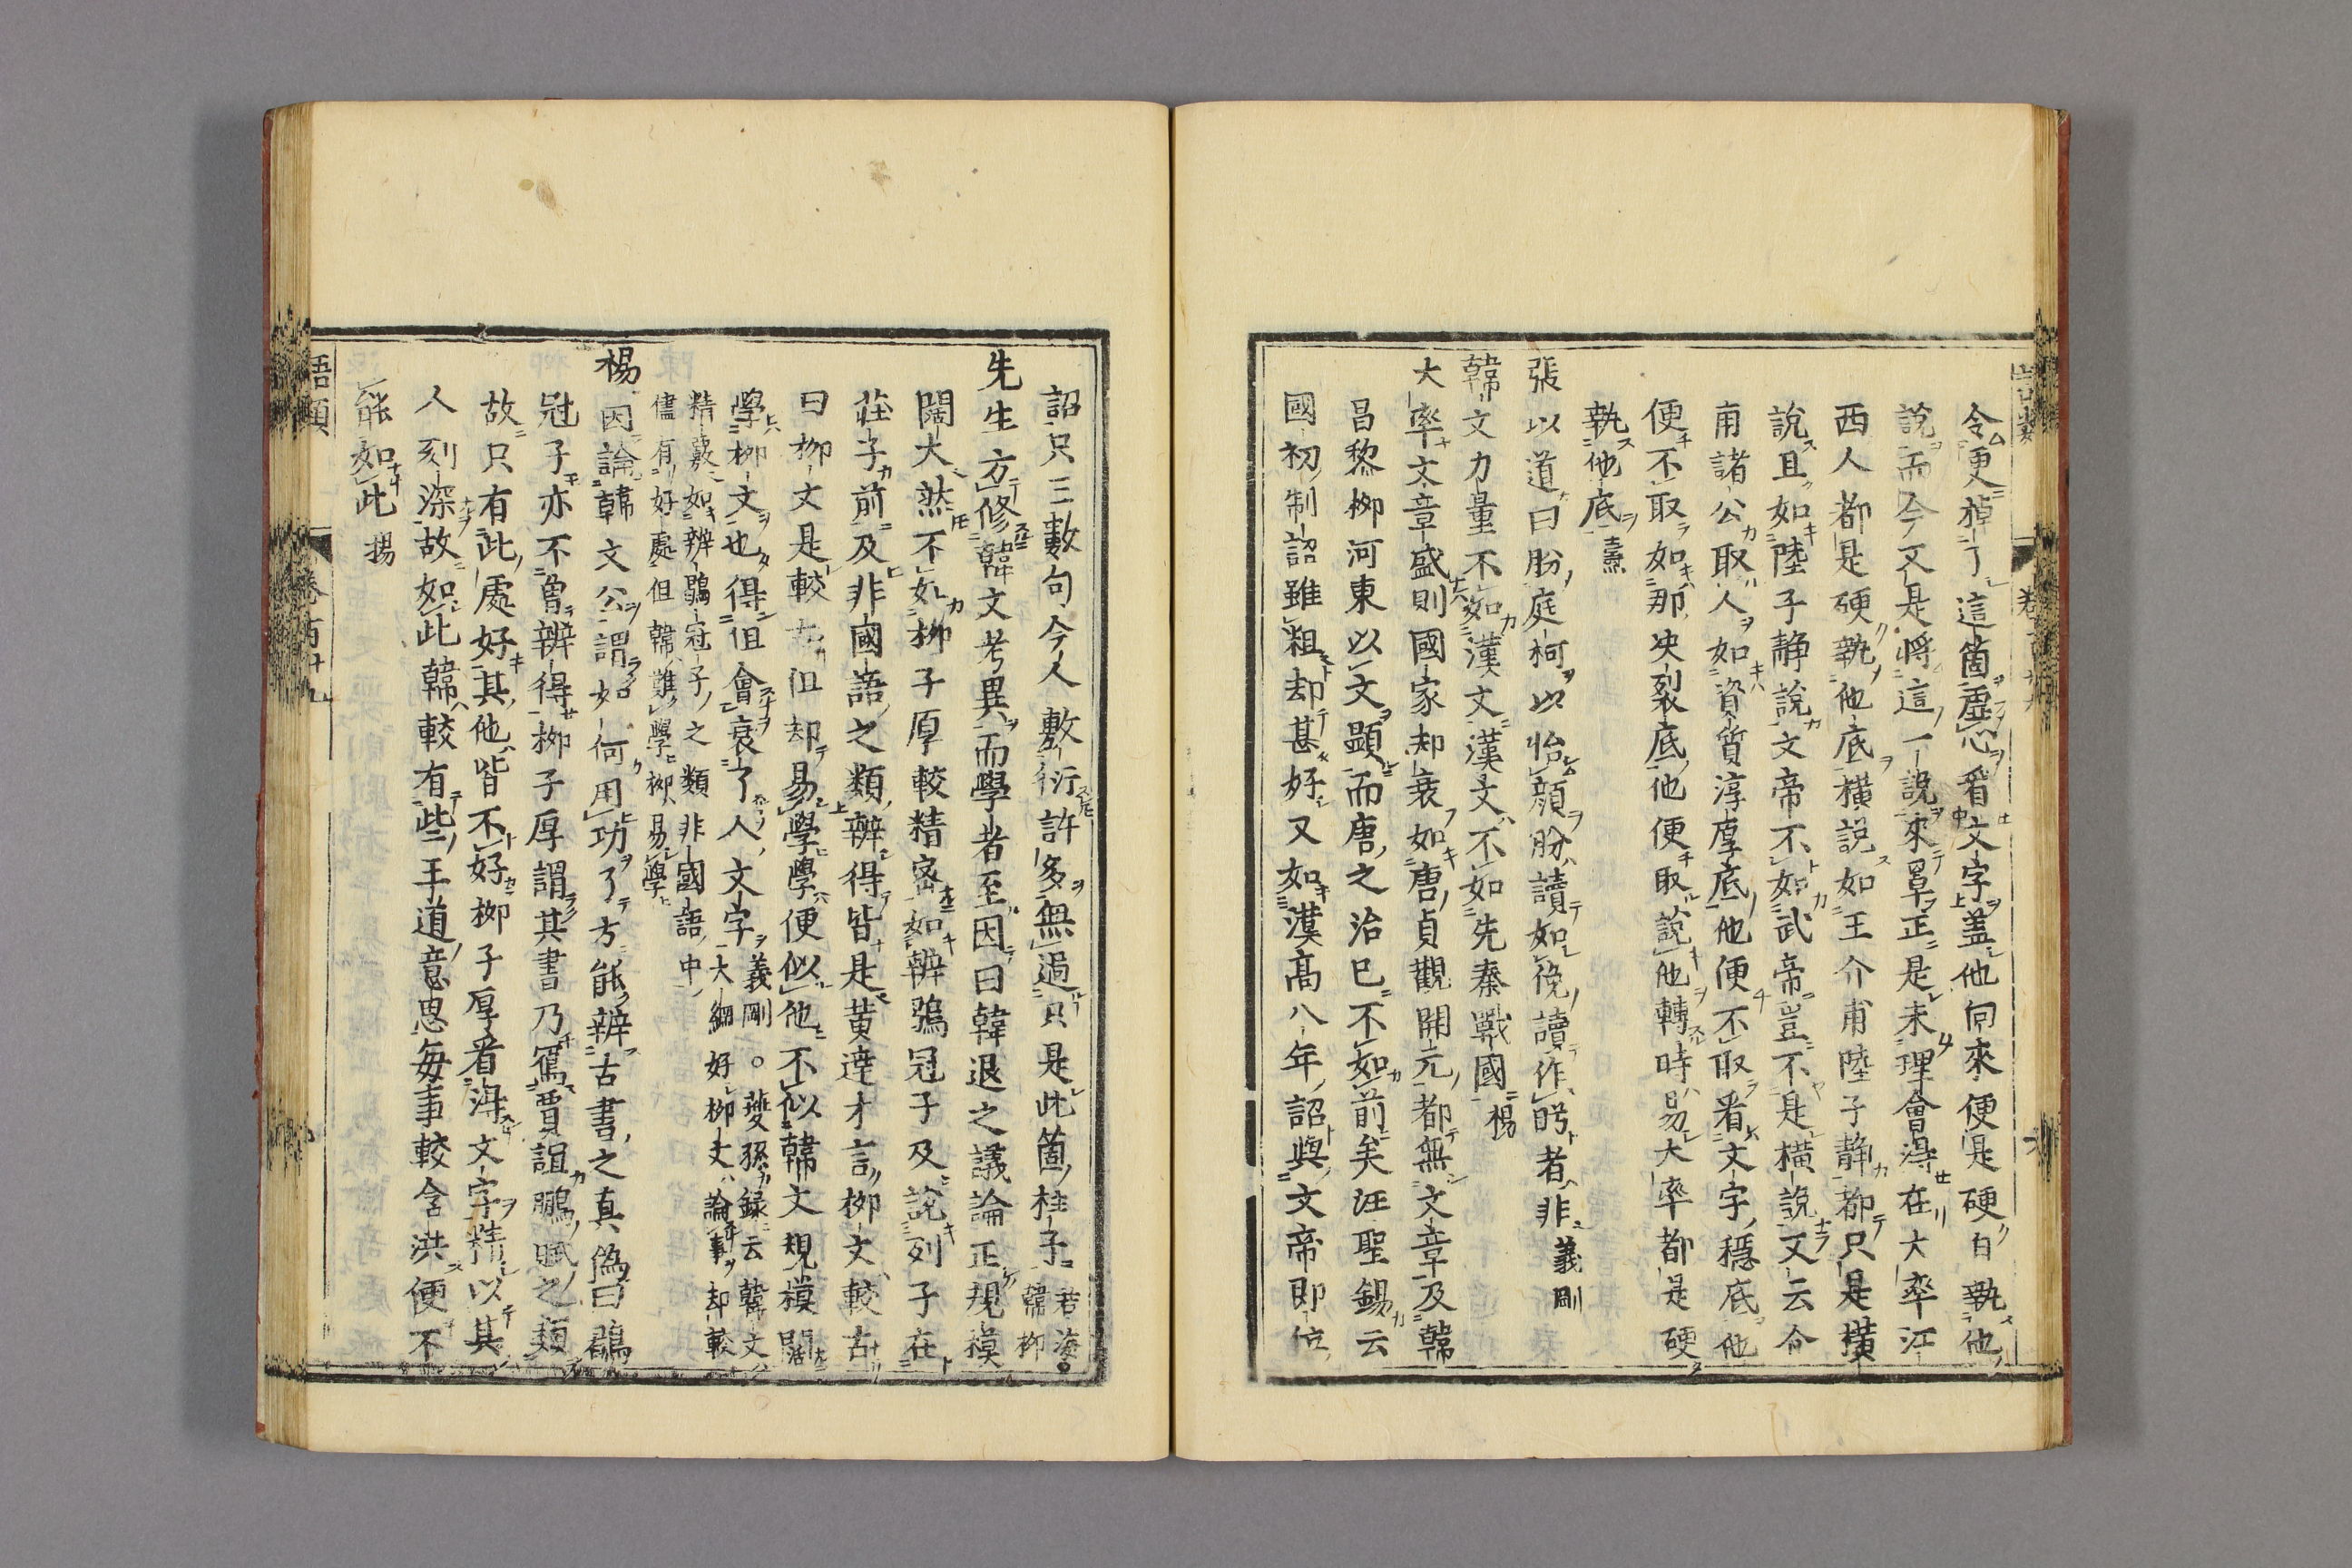 令便掉了這箇虛心看文字蓋他向來便是硬自執他
說而今又是將這一說來罩正是未理會得在大率江
西人都是硬執他底橫說如王介甫陸子靜都只是橫
說且如陸子靜說文帝不如武帝豈不是橫說又云介
甫諸公取人如資質淳厚底他便不取看文字穩底他
便不取如那決裂底他便取說他轉時易大率都是硬
執他底燾
張以道曰盼庭柯以怡顏盼讀如俛讀作眄者非義剛
韓文力量不如漢文漢文不如先秦戰國揚
大率文章盛則國家却衰如唐貞觀開元都無文章及韓
昌黎柳河東以文顯而唐之治已不如前矣汪聖錫云
國初制詔雖粗却甚好又如漢高八年詔與文帝即位
詔只三數句今人敷衍許多無過只是此箇柱子若海〇
韓柳
先生方修韓文考異而學者至因曰韓退之議論正規模
闊大然不如柳子厚較精密如辨鶡冠子及說列子在
莊子前及非國語之類辨得皆是黃達才言柳文較古
曰柳文是較古但却易學學便似他不似韓文規模闊
學柳文也得但會衰了人文字義剛〇夔孫錄云韓文
大綱好柳文論事却較
精覈如辨鶡冠子之類非國語中
儘有好處但韓難學柳易學
揚因論韓文公謂如何用功了方能辨古書之真偽曰鶡
冠子亦不曾辨得柳子厚謂其書乃寫賈誼鵩賦之類
故只有此處好其他皆不好柳子厚看得文字精以其
人刻深故如此韓較有些王道意思每事較含洪便不
能如此揚
語類
卷百十九